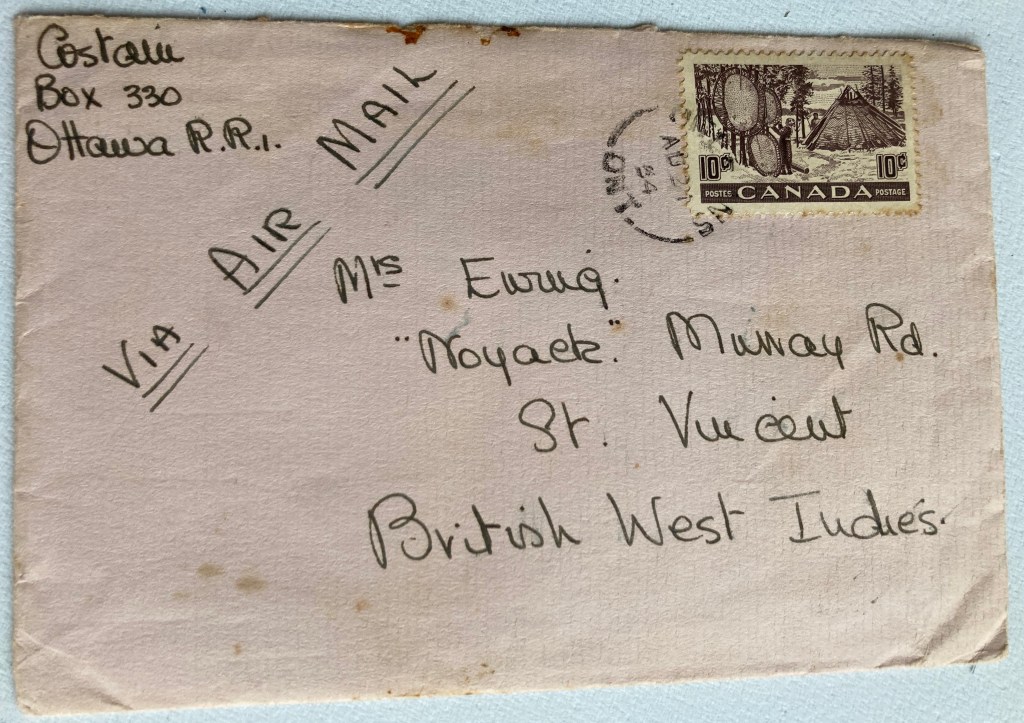 Costain
Box 330
Ottawa R.R.1.
VIA AIR MAIL
10¢ 10¢
POSTES CANADA POSTAGE
ONT
AU 2
54
Mrs Ewing.
"Noyack." Murray Rd.
St. Vincent
British West Indies.